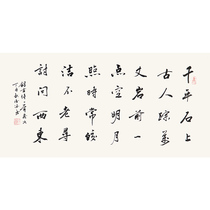 千年石上
古人踪萬
丈岩前一
点空明月
照時常皎
洁不劳尋
討問西東